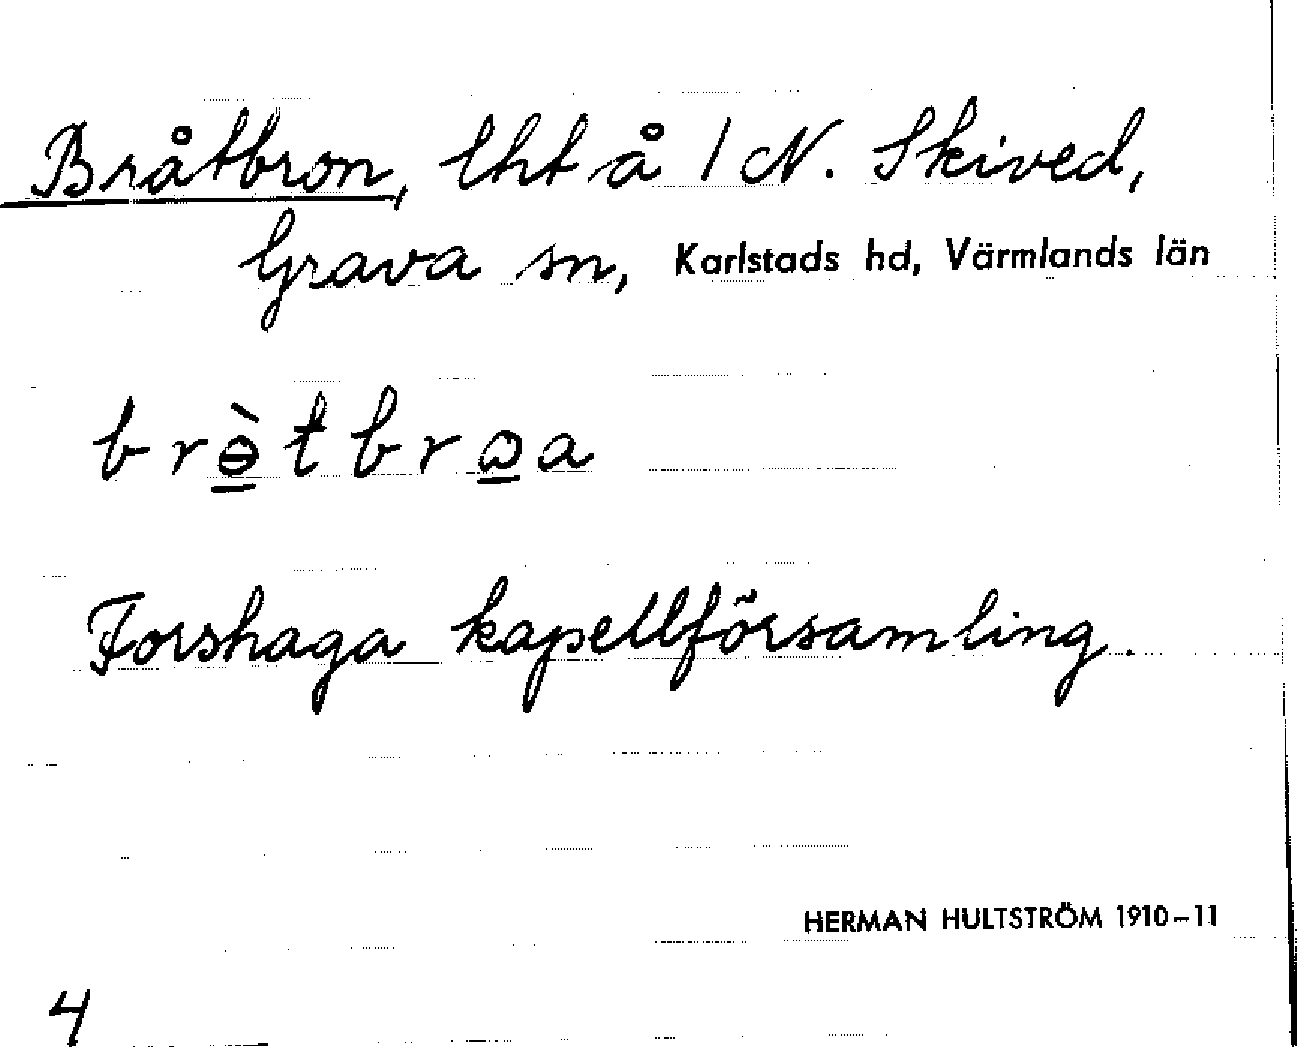 Bråtbron, lht å 1 N. Skived,
Grava sn, Karlstads hd, Värmlands län
brɵ̀tbrꞷa
Forshaga kapellförsamling.
HERMAN HULTSTRÖM 1910-11
4